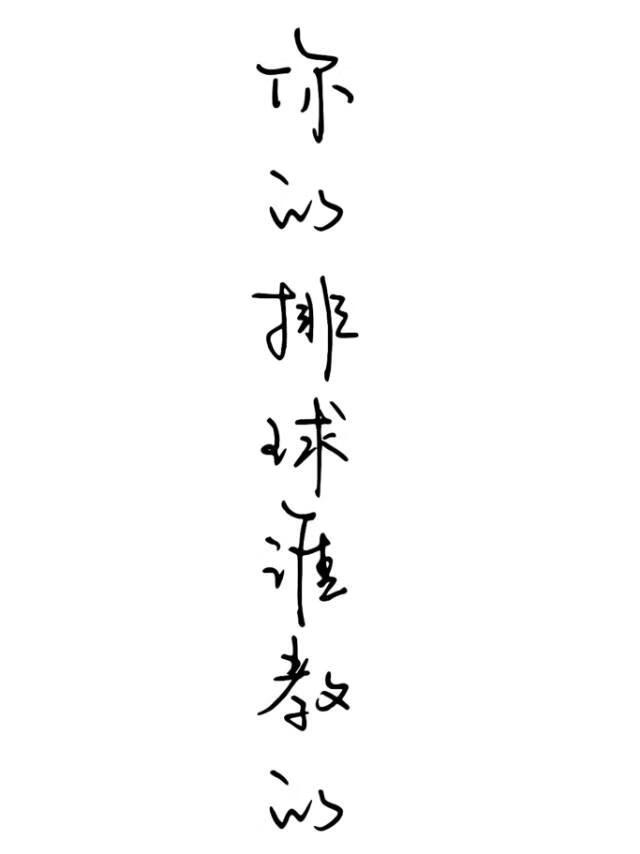 你的排球谁教的